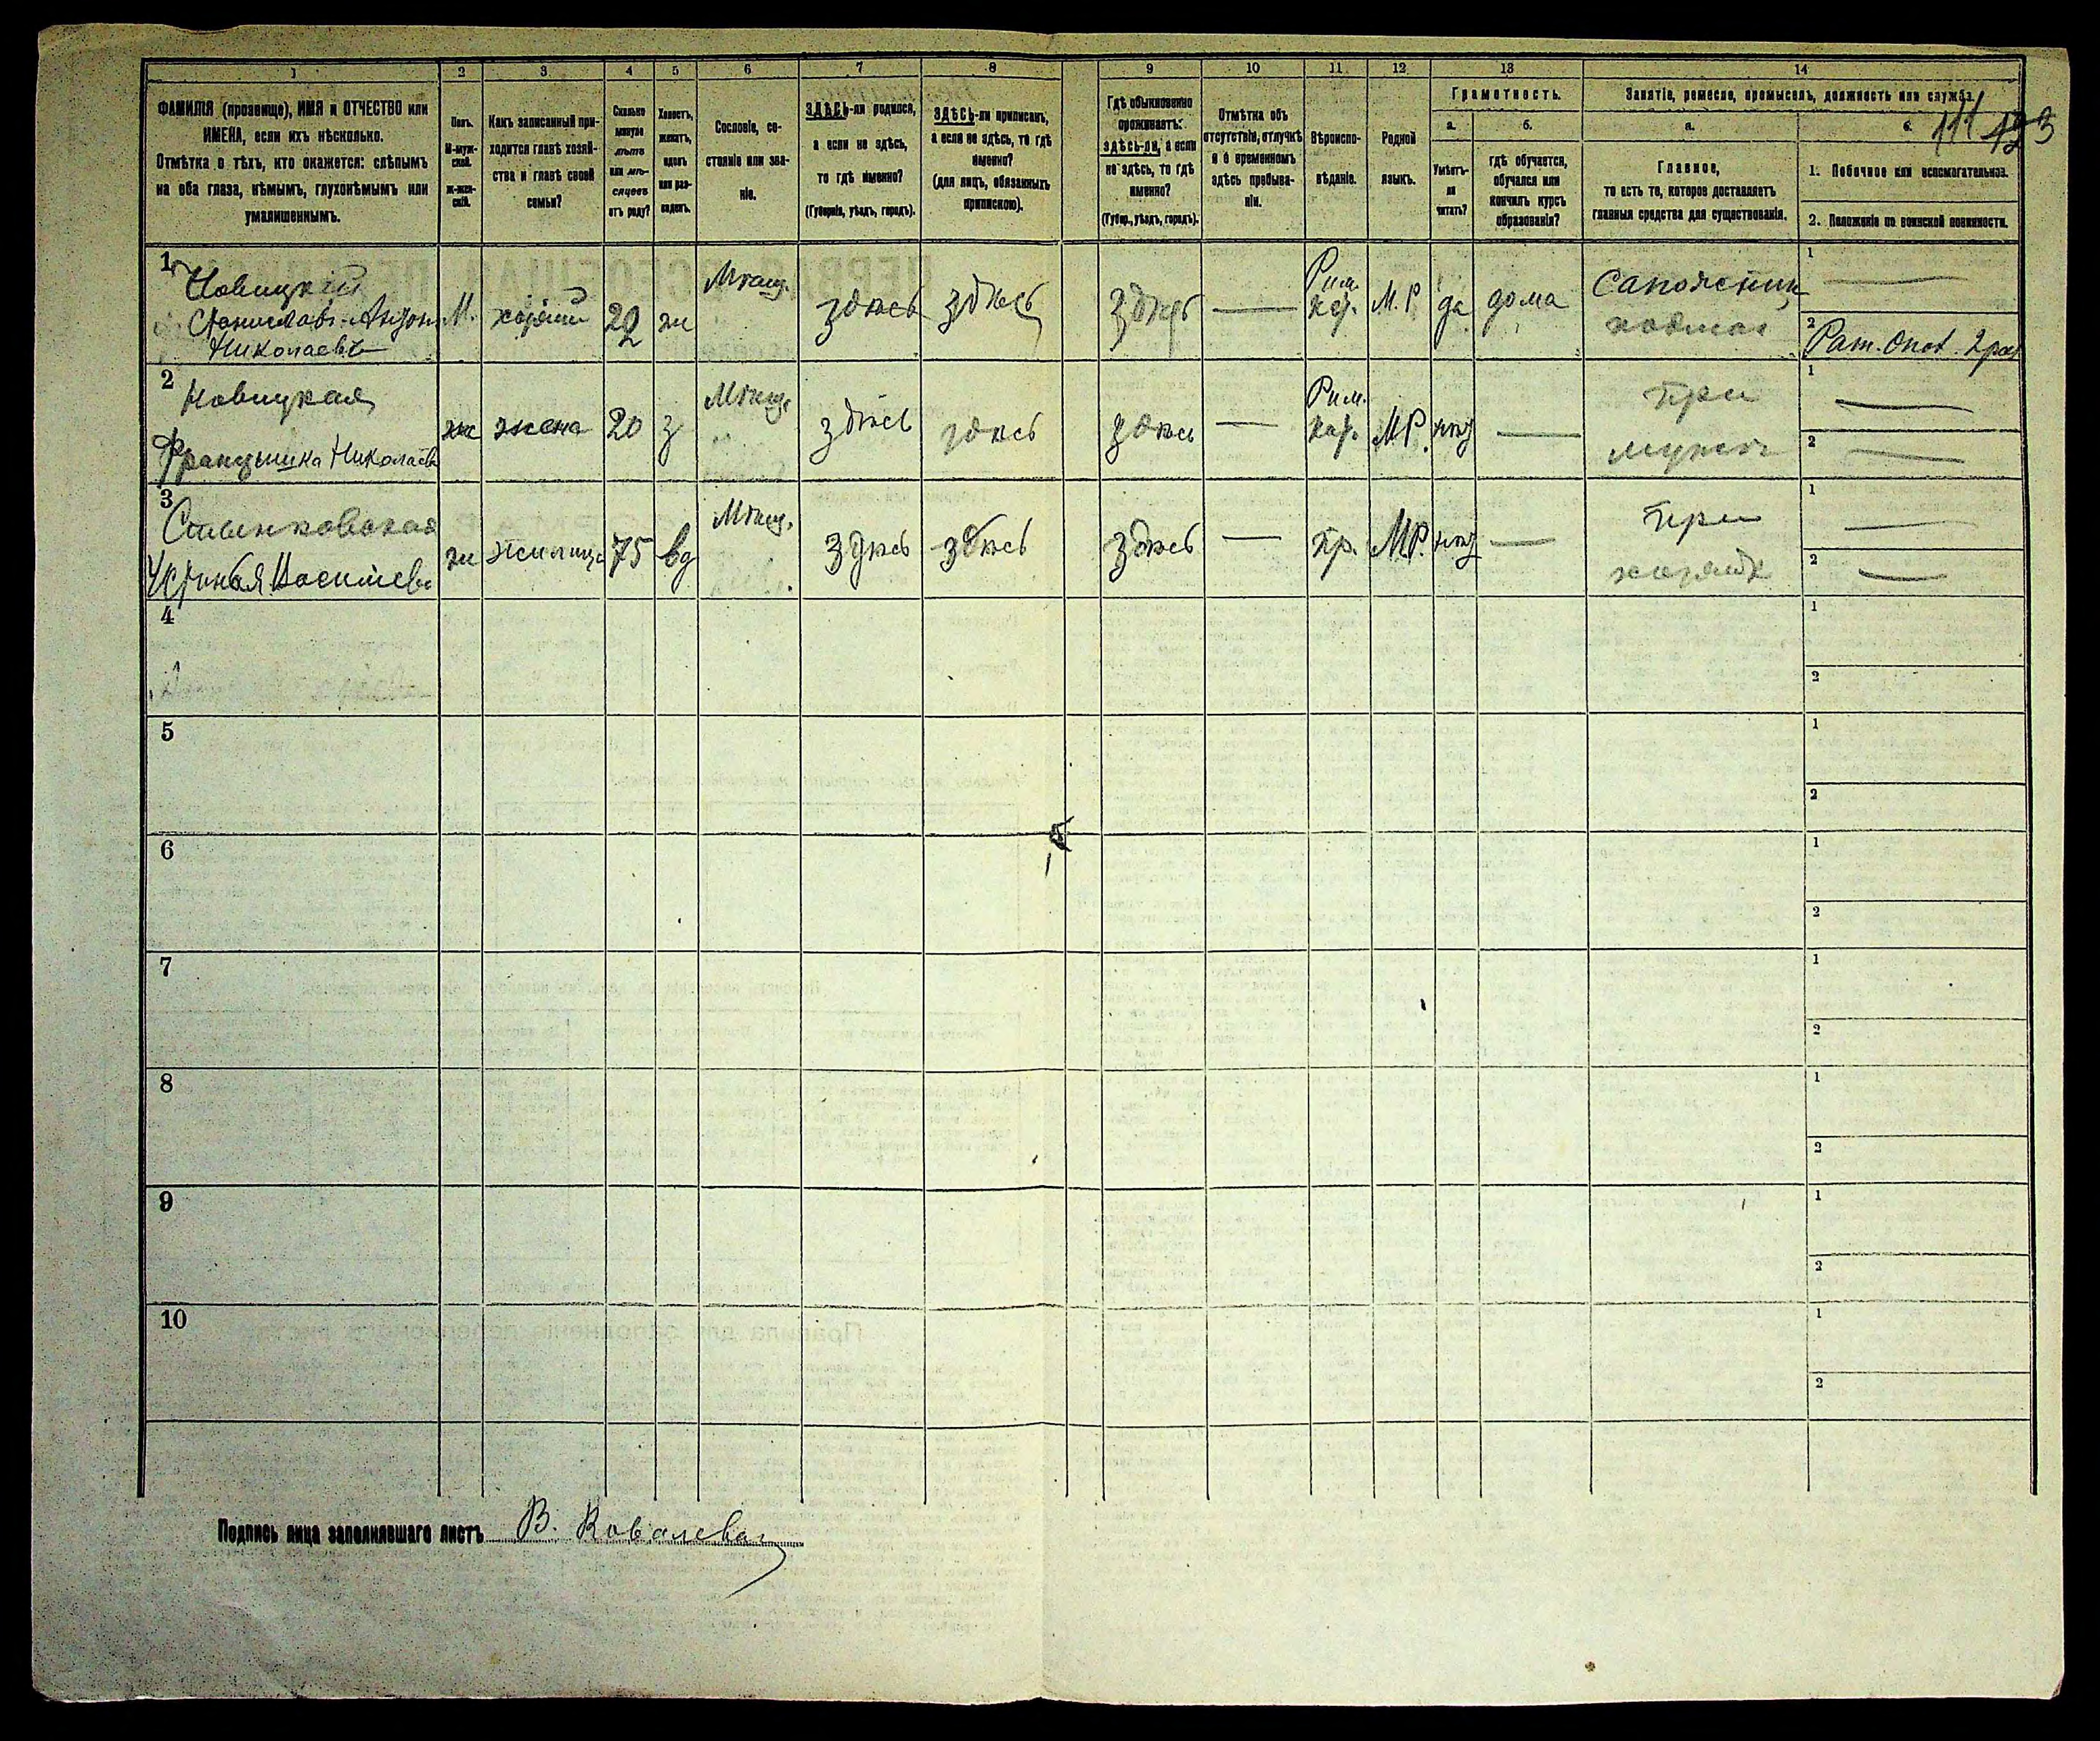 1 2 3 4 5 6 7 8 9 10 11 12 13 14
ФАМИЛІЯ (прозвище), ИМЯ и ОТЧЕСТВО или
ИМЕНА, если ихъ нѣсколько.
Отмѣтка о тѣхъ, кто окажется: слѣпымъ
на оба глаза, нѣмымъ, глухонѣмымъ или
умалишеннымъ.
Полъ.
М-муж-
ской.
Ж-жен-
скій.
Какъ записанный при-
ходится главѣ хозяй-
ства и главѣ своей
семьи?
Сколько
минуло
лѣтъ
или мѣ-
сяцевъ
отъ роду?
Холостъ,
женатъ,
вдовъ
или раз-
веденъ.
Сословіе, со-
стояніе или зва-
ніе.
ЗДѢСЬ-ли родился,
а если не здѣсь,
то гдѣ именно?
(Губернія, уѣздъ, городъ).
ЗДѢСЬ-ли приписанъ,
а если не здѣсь, то гдѣ
именно?
(для лицъ, обязанныхъ
припискою).
Гдѣ обыкновенно
проживаетъ:
здѣсь-ли, а если
не здѣсь, то гдѣ
именно?
(Губер., уѣздъ, городъ).
Отмѣтка объ
отсутствіи, отлучкѣ
и о временномъ
здѣсь пребыва-
ніи.
Вѣроиспо-
вѣданіе.
Родной
языкъ.
Грамотность.
а.
Умѣетъ-
ли
читать?
б.
гдѣ обучается,
обучался или
кончилъ курсъ
образованія?
Занятіе, ремесло, промыселъ, должность или служба.
111 123
а.
Главное,
то есть то, которое доставляетъ
главныя средства для существованія.
б.
1. Побочное или вспомогательное.
2. Положеніе по воинской повинности.
1 Новицкій
Станиславъ-Антонъ
Николаевъ
М. хозяинъ ж Мѣщ. здѣсь здѣсь здѣсь — Рим. кат. М.Р да дома Сапожник
1 —
2 Рат. Опол. 2 раз
2 Новицкая
Францишка Николаев
ж жена 20 з Мѣщ. здѣсь здѣсь здѣсь — Рим. кат. М.Р. нѣт — при
мужѣ
1 —
2 —
3
Василіев
ж жилица 75 вд Мѣщ. здѣсь здѣсь здѣсь — пр. М.Р. нѣт — при
1 —
2 —
4 1
2
5 1
2
6 1
2
7 1
2
8 1
2
9 1
2
10 1
2
Подпись лица заполнявшаго листъ В. Ковалева